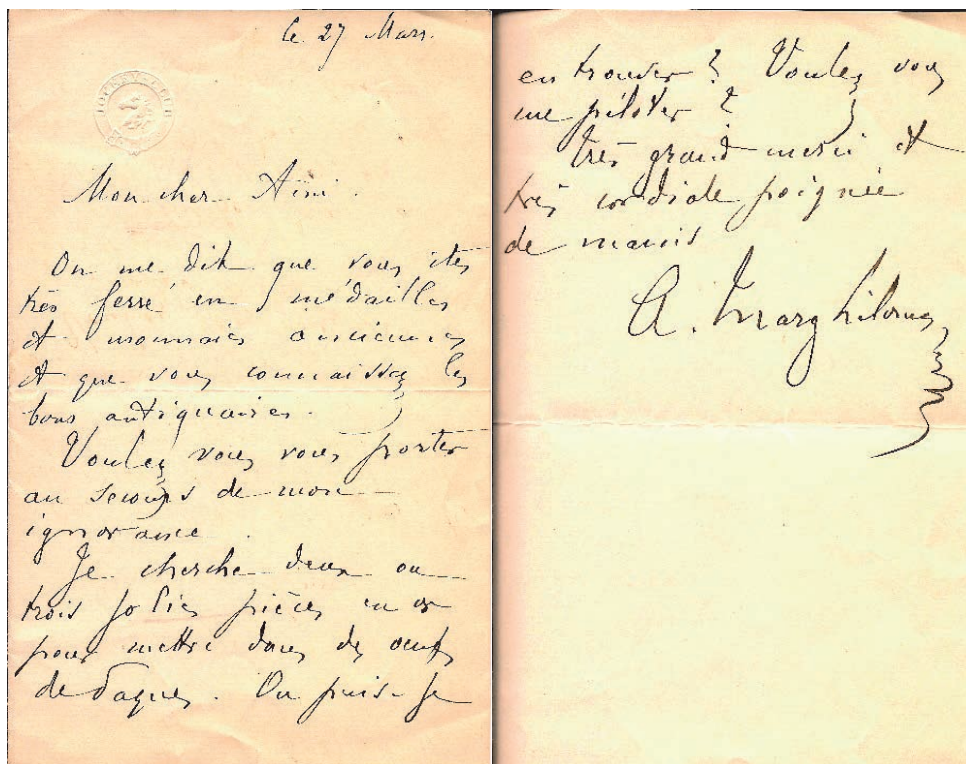 le 27 Mars.
JOCKEY-CLUB
Mon cher
On me dit que vous êtes
très ferré en médailles
et monnaies anciennes
et que vous connaissez les
bons antiquaires.
Voulez vous vous porter
au secours de mon
ignorance.
Je cherche deux ou
trois jolies pièces en or
pour mettre dans des œufs
de Pâques. Où puis-je
en trouver ? Voulez vous
me piloter ?
Très grand merci et
très cordiale poignée
de mains
A. Marghiloman